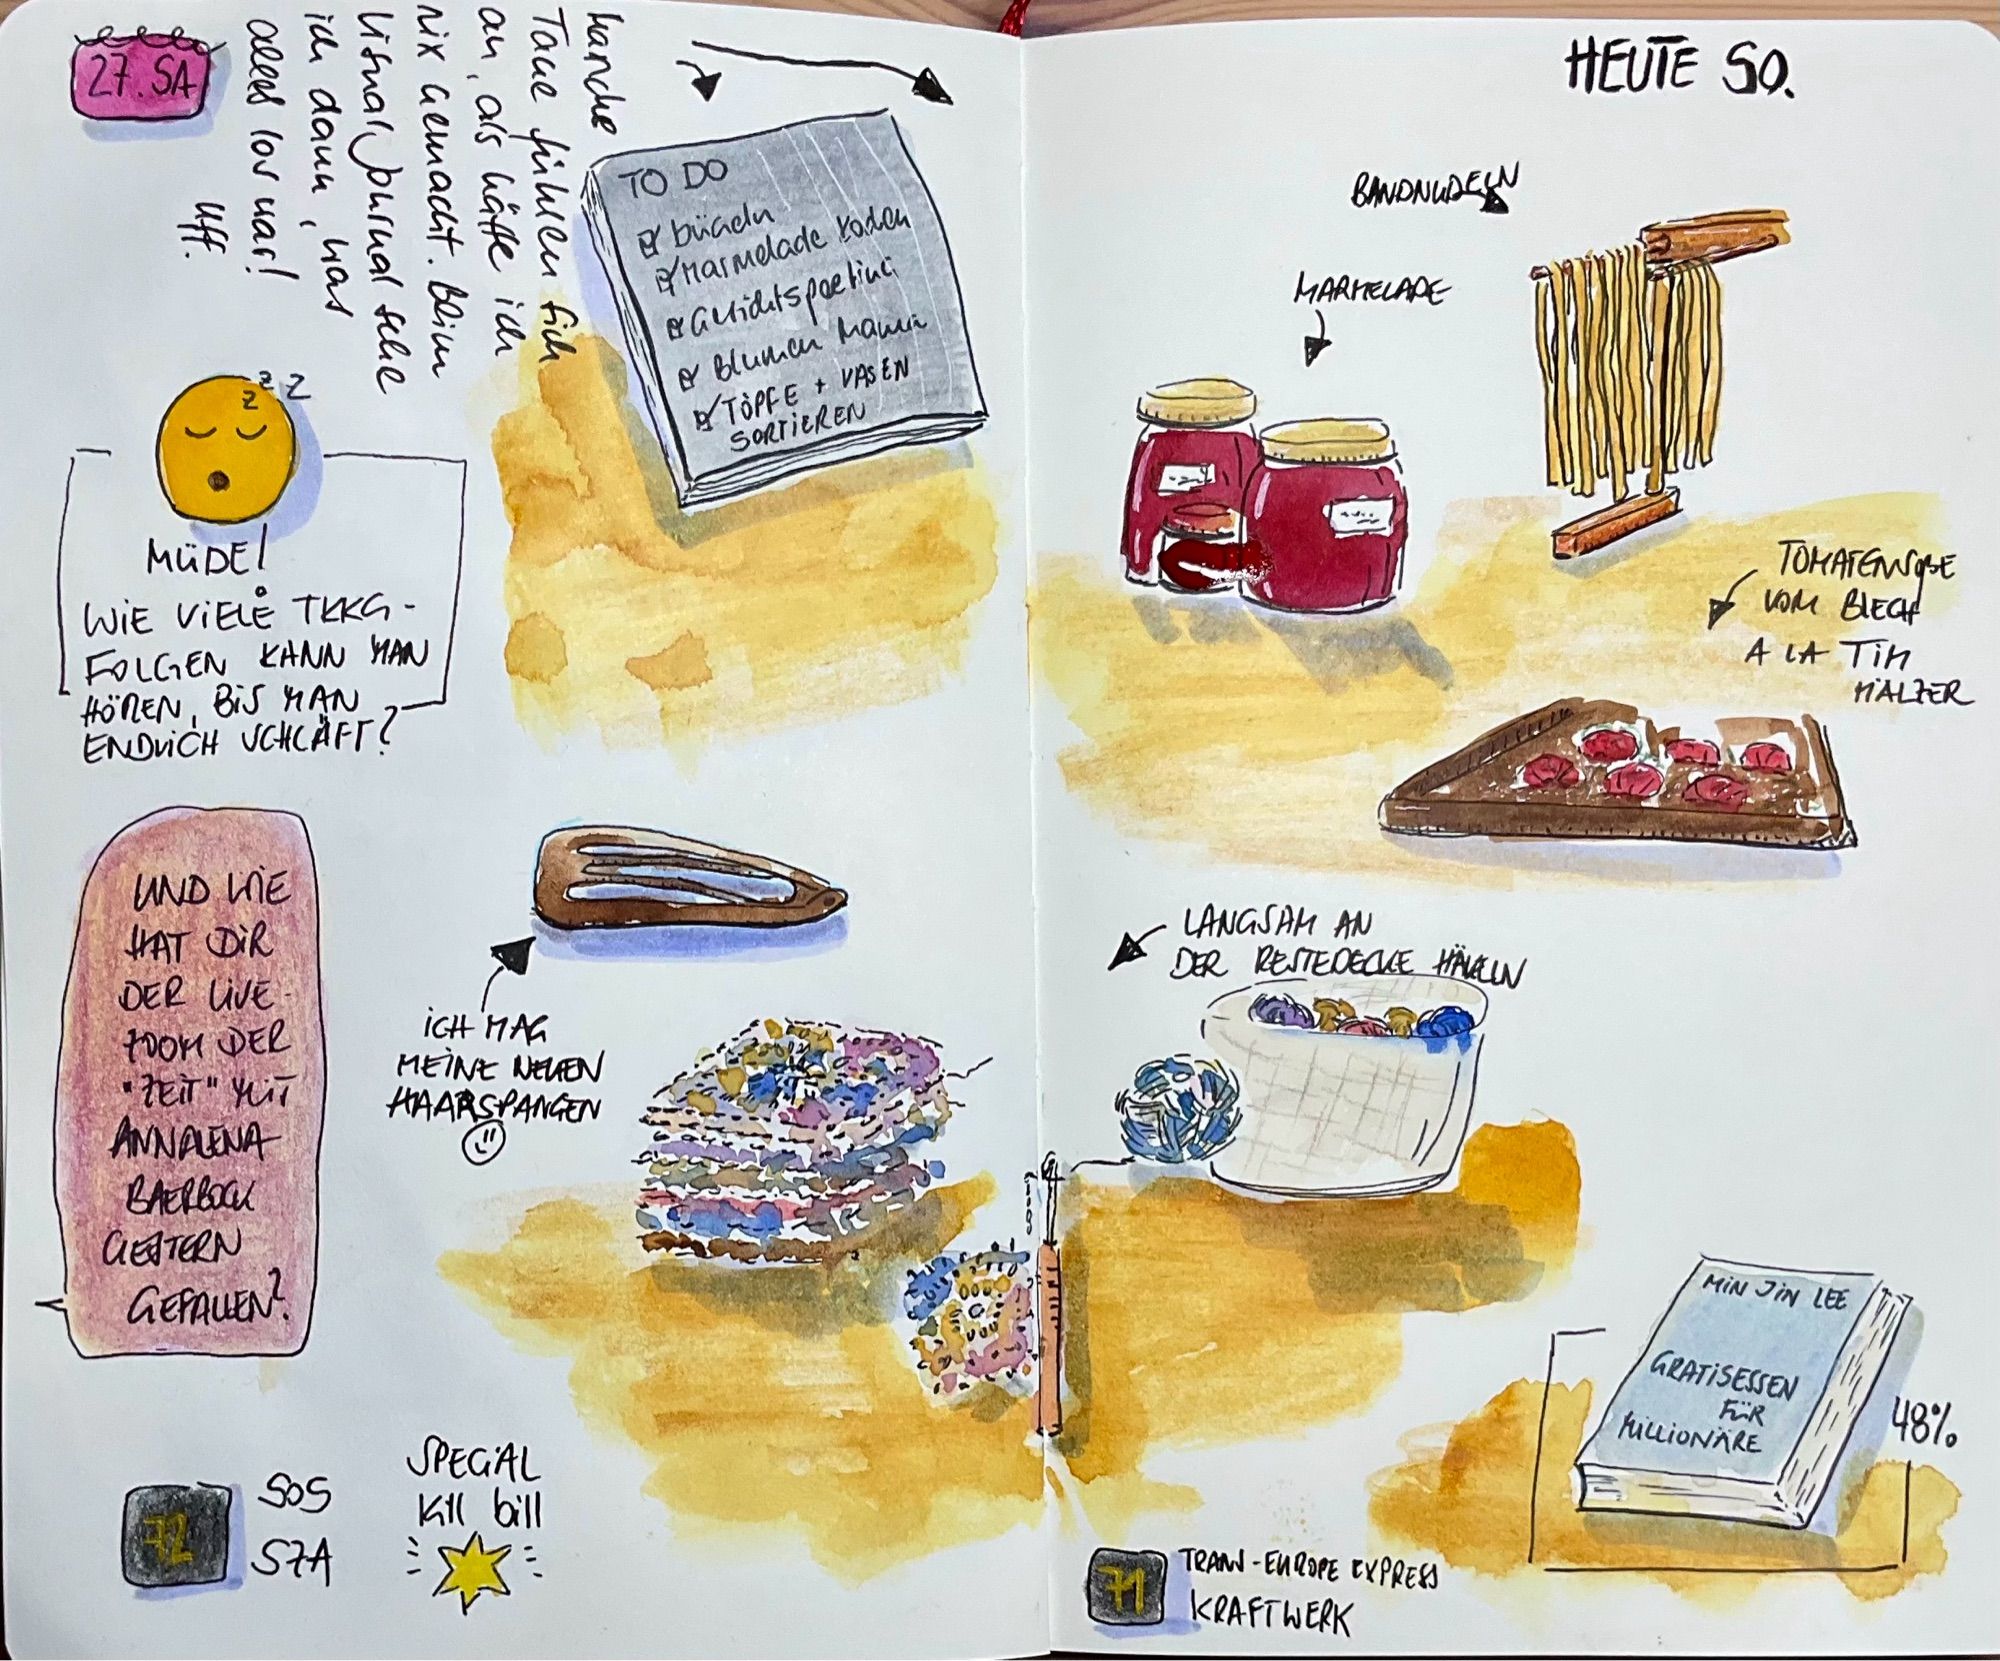 27. SA
Manche
Tage fühlen sich
an, als hätte ich
nix gemacht. Beim
Visual Journal sehe
ich dann, was
alles los war!
Uff.
TO DO
bügeln
Marmelade kochen
Blumen Mama
TÖPFE + VASEN
SORTIEREN
Z Z Z
MÜDE!
WIE VIELE TKKG-
FOLGEN KANN MAN
HÖREN, BIS MAN
ENDLICH SCHLÄFT?
UND WIE
HAT DIR
DER LIVE-
ZOOM DER
"ZEIT" MIT
ANNALENA
BAERBOCK
GESTERN
GEFALLEN?
ICH MAG
MEINE NEUEN
HAARSPANGEN
72
SOS
SZA
SPECIAL
Kill bill
HEUTE SO.
BANDNUDELN
MARMELADE
TOMATENSOßE
VOM BLECH
A LA TIM
MÄLZER
LANGSAM AN
DER RESTEDECKE HÄKELN
MIN JIN LEE
GRATISESSEN
FÜR
MILLIONÄRE
48%
71
TRANS-EUROPE EXPRESS
KRAFTWERK